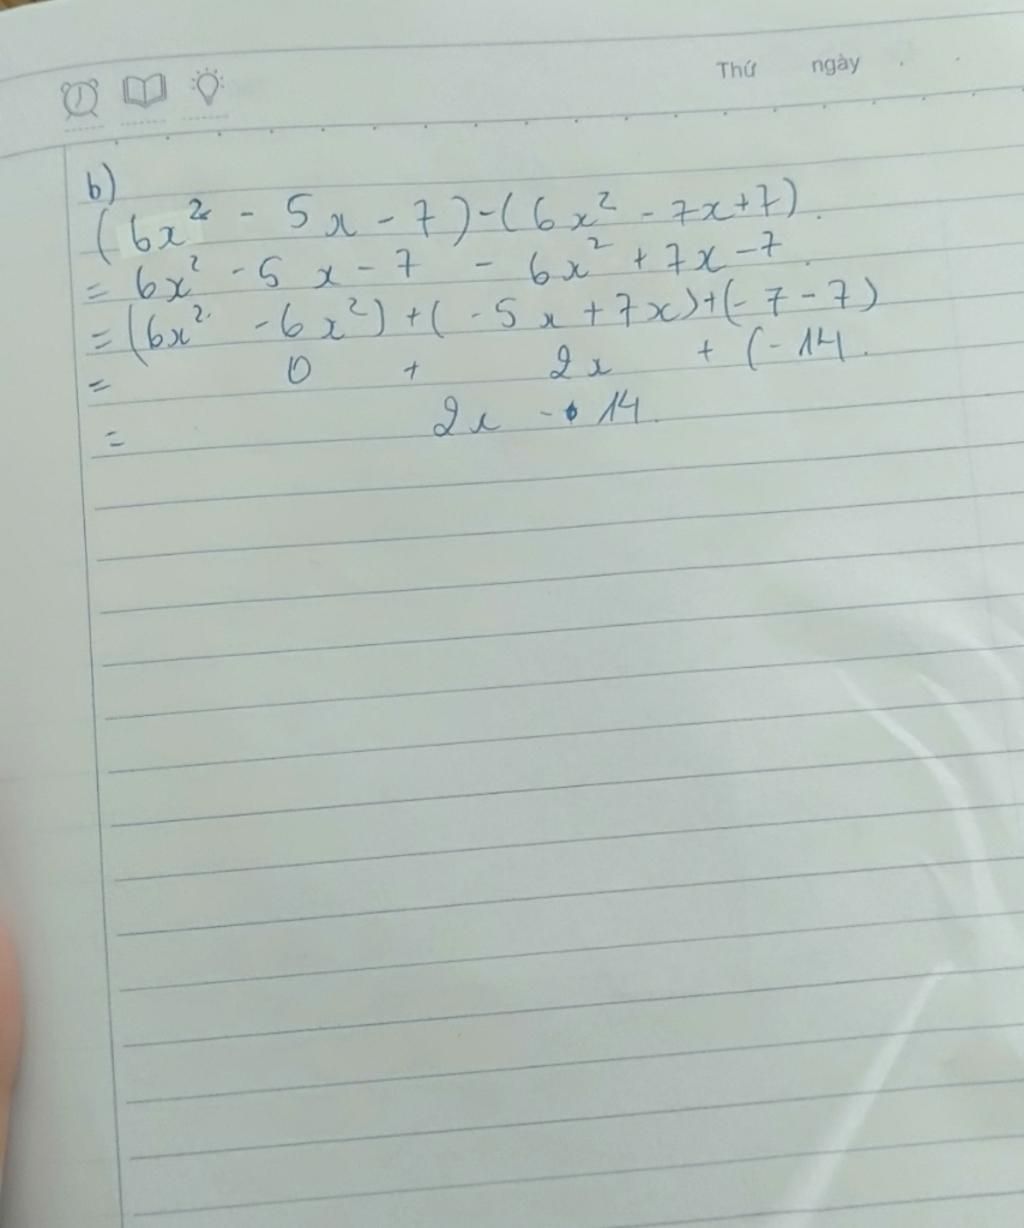 Thứ ngày
b)
(6x² - 5x - 7) - (6x² - 7x + 7).
= 6x² - 5x - 7 - 6x² + 7x - 7
= (6x² - 6x²) + (-5x + 7x) + (-7 - 7)
= 0 + 2x + (-14.
= 2x - 14.